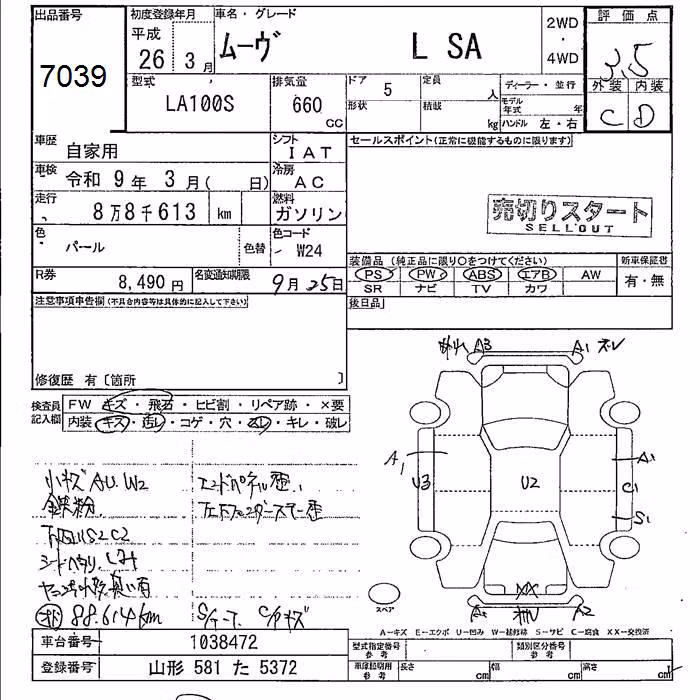 出品番号 初度登録年月 車名・グレード 2WD・4WD 評価点
7039 平成 26年 3月 ムーヴ L SA 3.5
型式 排気量 ドア 5 定員 人 ディーラー・並行 外装 内装
LA100S 660 cc 形状 積載 kg モデル年式 年 ハンドル 左・右 C D
車歴 自家用 シフト IAT セールスポイント(正常に機能するものに限ります)
車検 令和 9年 3月( 日) 冷房 AC
走行 8万8千613 km 燃料 ガソリン 売切りスタート
SELLOUT
色 パール 色替 色コード W24
装備品(純正品に限り○をつけてください) 新車保証書
R券 8,490円 名変通知期限 9月25日 PS PW ABS エアB AW 有・無
SR ナビ TV カワ
注意事項申告欄(不具合内容等は具体的に記入して下さい) 後日品
修復歴 有〔箇所 〕
検査員記入欄 FW キズ・飛石・ヒビ割・リペア跡・×要
内装 キズ・汚レ・コゲ・穴・凹レ・キレ・破レ
A3 A1
A1 U3 U2 A1 C1 S1
小キズ AU.W2 エンドパネル歪.
鉄粉
下回リS2C2
シートヘタリ
88.614km キズ
スペア XX A2
A-キズ E-エクボ U-凹み W-補修跡 S-サビ C-腐食 XX-交換済
車台番号 1038472 型式指定番号 参考 類別区分番号 参考
登録番号 山形 581 た 5372 車庫証明用 参考 長さ cm 幅 cm 高さ cm